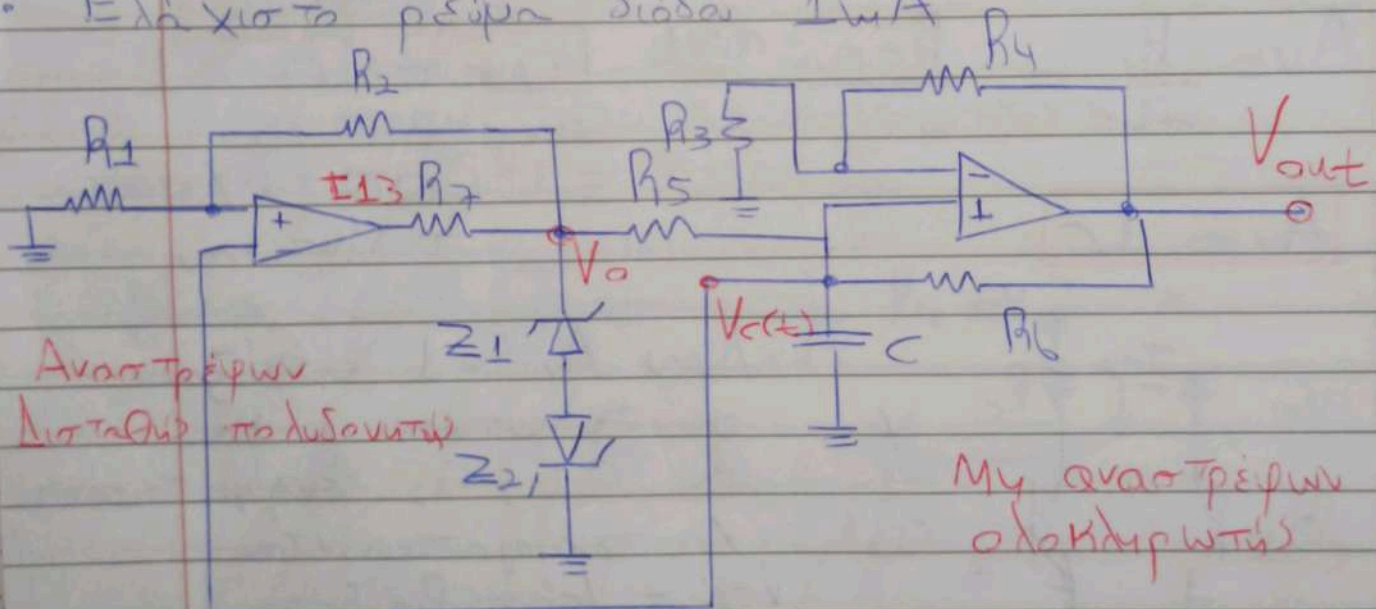 · Ελάχιστο ρεύμα διόδου 1mA
R4
R2
R1
R3
Vout
I13 R7
R5
+
-
+
Vo
Z1
Vc(t)
C
R6
Αναστρέφων
Δισταθής πολυδονητής
Z2
Μη αναστρέφων
ολοκληρωτής